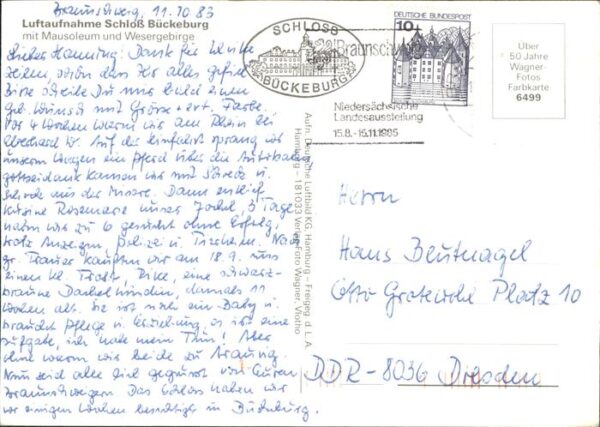 Braunschweig, 11.10.85
Luftaufnahme Schloß Bückeburg
mit Mausoleum und Wesergebirge
Lieber Henning: Dank für
schon den Ihr alles
Bitte schreibe Du mir bald einen
Geb. Wunsch mit Grösse + evt. Farbe.
Vor 4 Wochen waren wir am Rhein bei
Eberhard W. Auf der Heimfahrt sprang vor
unseren Wagen ein Pferd über die Autobahn,
gottseidank kamen wir mit Schreck u.
aus der Misere. Dann entlief
Rosemarie unser Jockel, 3 Tage
haben wir zu 6 gesucht ohne Erfolg,
trotz Anzeigen, Polizei u. Tierheim. Nach
gr. Trauer kauften wir am 18.9. uns
einen kl. Trost, eine schwarz-
braune Dackelhündin, damals 11
Wochen alt. Sie ist noch ein Baby u.
braucht Pflege u. Erziehung, es ist eine
Aufgabe, ich habe mein Tun! Aber
ohne waren wir beide zu traurig.
Nun seid alle lieb gegrüsst von Euren
Braunschweigern. Das Schloss haben wir
vor einigen Wochen besichtigt in Bückeburg.
SCHLOSS
BÜCKEBURG
Braunschweig
Niedersächsische
Landesausstellung
15.8.-15.11.1985
DEUTSCHE BUNDESPOST
10
Über
50 Jahre
Wagner-
Fotos
Farbkarte
6499
Aufn. Deutsche Luftbild KG, Hamburg - Freigeg. d. L. A.
Hamburg - 181033 Verlag Foto Wagner, Vlotho
Herrn
Hans Beutnagel
Otto Grotewohl Platz 10
DDR-8036 Dresden